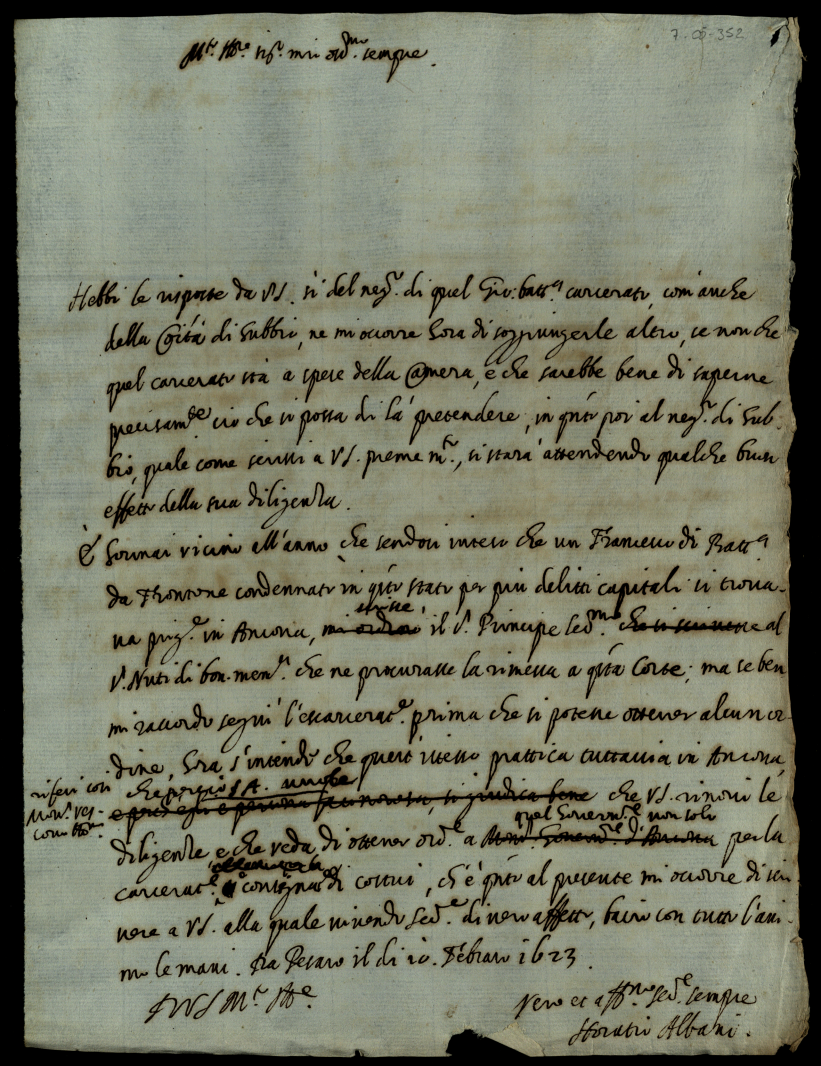 7.05.352
M.to Ill.re sig.r mio oss.mo sempre.
Hebbi le risposte da VS. sì del neg.o di quel Gio: batt.a carcerato, com'anche
della Città di Gubbio, ne mi occorre hora di soggiungerle altro, se non che
quel carcerato stà a spese della Camera, e che sarebbe bene di saperne
precisam.te ciò che si possa di là pretendere, in q.to poi al neg.o di Gub-
bio, quale come scrissi a VS. preme m.to, si starà attendendo qualche buon
effetto della sua diligenza.
È hormai vicino all'anno che sendosi inteso che un Francesco di Batt.a
da Frontone condennato in q.to stato per più delitti capitali si trova-
va prig.e in Ancona, scrisse il S.r Principe Ser.mo al
S.r Nuti di bon. mem.a che ne procurasse la rimessa a q.ta Corte; ma se ben
mi raccordo seguì l'escarcerat.e prima che si potesse ottener alcun or-
dine, hora s'intende che quest'istesso prattica tuttavia in Ancona,
riferi con
Mons.r Ves-
che perciò S.A. vuole
e perch'egli è persona facinorosa, si giudica bene che VS. rinovi le
quel Governat.e non solo
diligenze e che veda di ottener ord.e a Mons.r Govern.re d'Ancona per la
carcerat.e consegna di costui, ch'è q.to al presente mi occorre di scri-
vere a VS. alla quale vivendo ser.e di vero affetto, bacio con tutto l'ani-
mo le mani. Da Pesaro il dì 10. Febraro 1623.
D VS M.to Ill.re
Vero et aff.mo ser.e sempre
Horatio Albani.